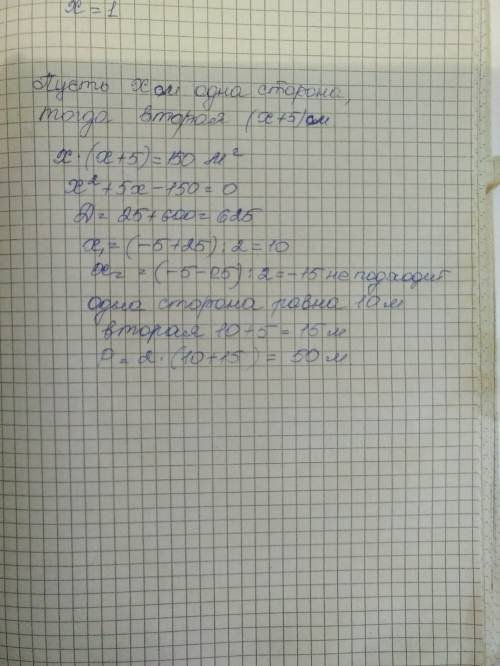 x = 1
Пусть x м одна сторона,
тогда вторая (x+5) м
x · (x+5) = 150 м²
x² + 5x - 150 = 0
D = 25 + 600 = 625
x₁ = (-5+25) : 2 = 10
x₂ = (-5-25) : 2 = -15 не подходит
одна сторона равна 10 м
вторая 10 + 5 = 15 м
P = 2 · (10+15) = 50 м